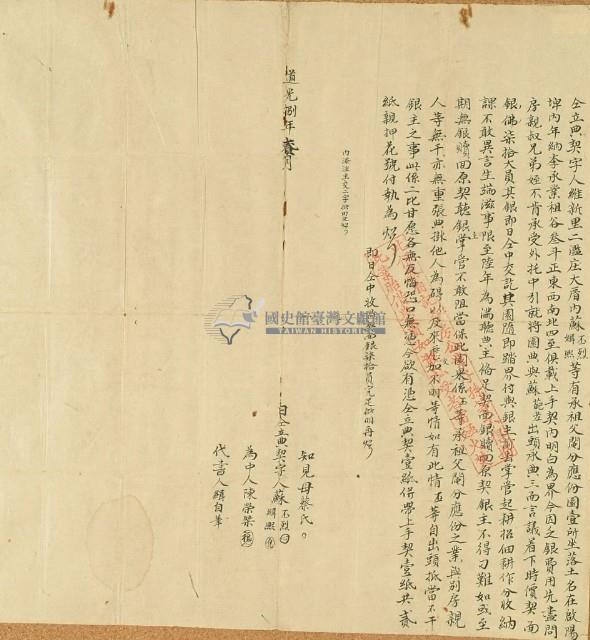 仝立典契字人維新里二濫庄大厝內蘇丕烈緝熙等有承祖父鬮分應份園壹所坐落土名在啟陽
埤內年納李承業祖谷叁斗正東西南北四至俱載上手契內明白為界今因乏銀費用先盡問
房親叔兄弟姪不肯承受外托中引就將園典與蘇範老出頭承典三面言議着下時價契面
銀佛柒拾大員其銀即日仝中交訖其園隨即踏界付與銀主前去掌管起耕招佃耕作分收納
課不敢異言生端滋事限至陸年為滿聽典主備足契面銀贖回原契銀主不得刁難如或至
期無銀贖回原契聽銀主掌管不敢阻當保此園果係丕等承祖父鬮分應份之業與別房親
人等無干亦無重張典掛他人為碍以及來歷加不明等情如有此情丕等自出頭抵當不干
銀主之事此係二比甘愿各無反悔恐口無憑今欲有憑仝立典契壹紙併帶上手契壹紙共貳
紙親押花號付執為炤
即日仝中收過契面銀柒拾員完足批明再炤
內添注主交二字批明足炤
道光捌年貳月
知見母蔡氏
日仝立典契字人蘇丕烈緝熙
為中人陳榮桀
代書人緝自筆
國史館臺灣文獻館
TAIWAN HISTORICA